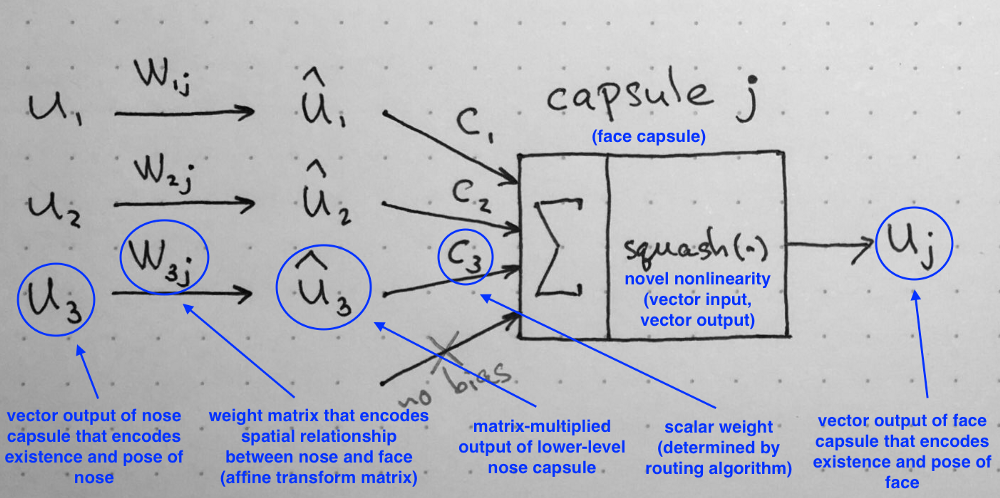 capsule j
(face capsule)
u₁ W₁ⱼ û₁ c₁
u₂ W₂ⱼ û₂ c₂
u₃ W₃ⱼ û₃ c₃
Σ squash(·) uⱼ
novel nonlinearity
(vector input,
vector output)
no bias
vector output of nose
capsule that encodes
existence and pose of
nose
weight matrix that encodes
spatial relationship
between nose and face
(affine transform matrix)
matrix-multiplied
output of lower-level
nose capsule
scalar weight
(determined by
routing algorithm)
vector output of face
capsule that encodes
existence and pose of
face